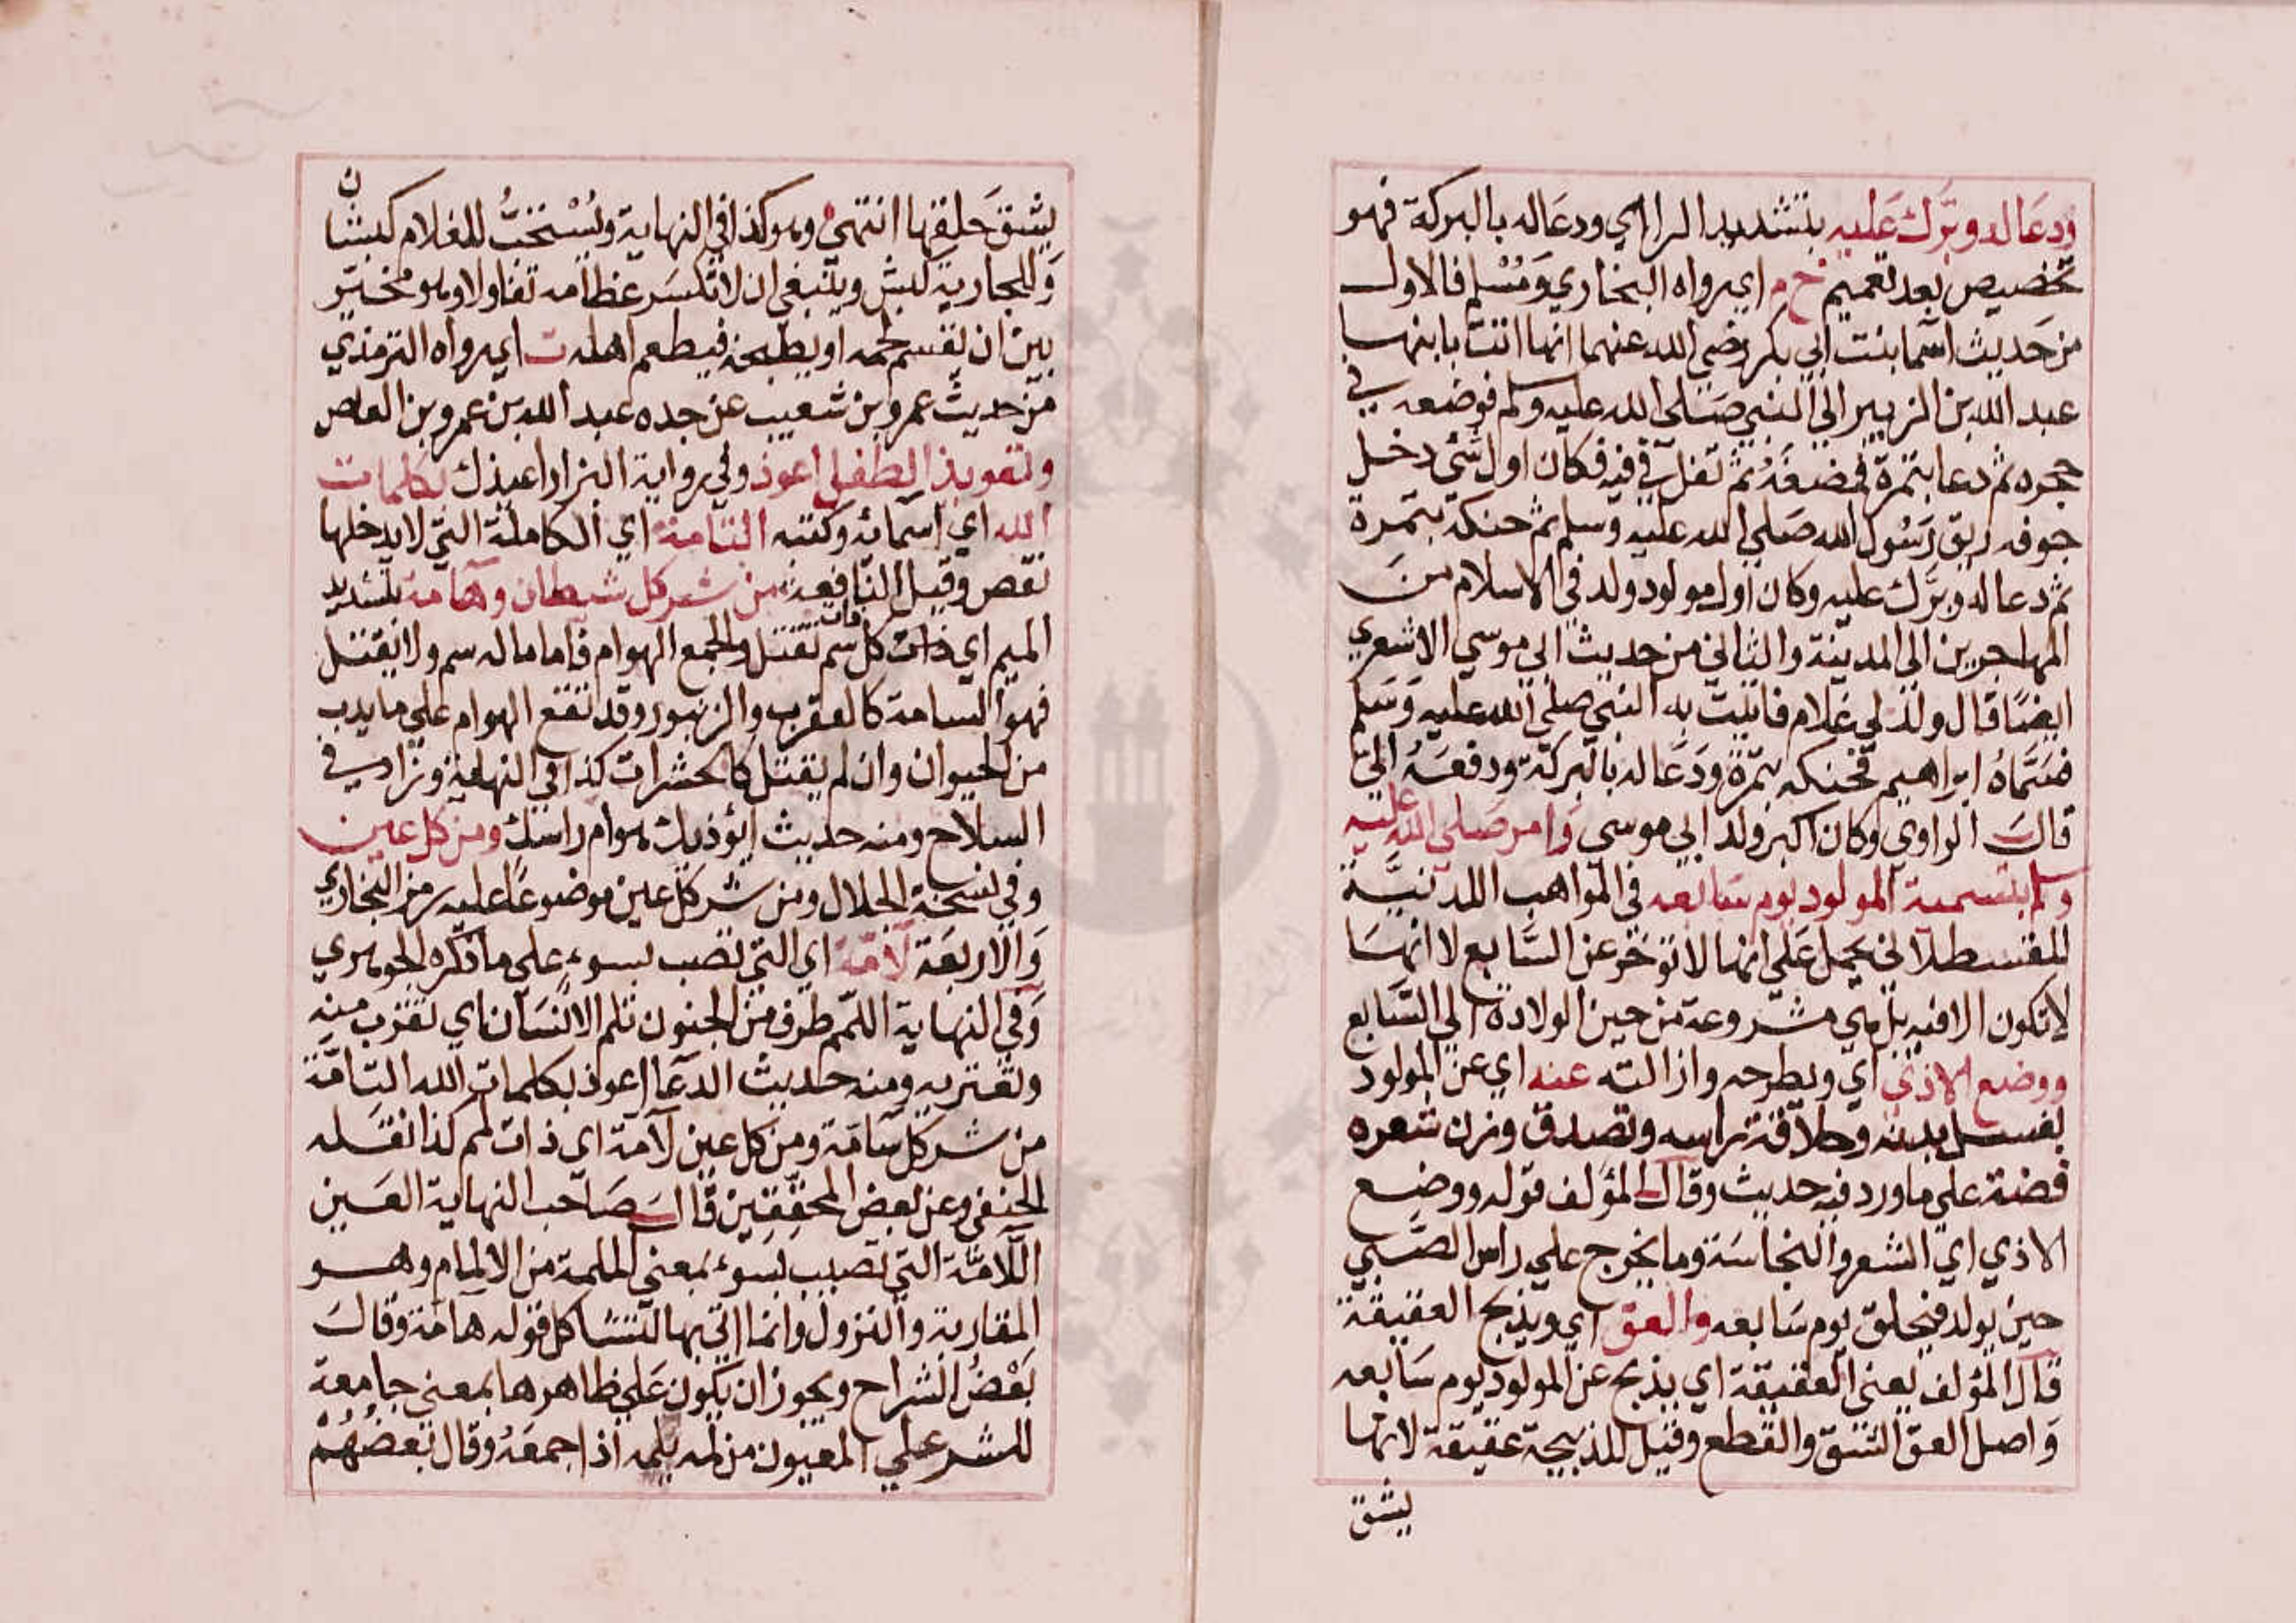 ودعا له وبرك عليه بتشديد الرا اي ودعا له بالبركة فهو
تخصيص بعد تعميم خ م اي رواه البخاري ومسلم فالاول
من حديث اسما بنت ابي بكر رضي الله عنهما انها اتت بابنها
عبد الله بن الزبير الي النبي صلي الله عليه وسلم فوضعه في
حجره ثم دعا بتمرة فمضغه ثم تفل في فيه فكان اول شئ دخل
جوفه ريق رسول الله صلي الله عليه وسلم ثم حنكه بتمرة
ثم دعا له وبرك عليه وكان اول مولود ولد في الاسلام من
المهاجرين الي المدينة والثاني من حديث ابي موسي الاشعري
ايضا قال ولد لي غلام فاتيت به النبي صلي الله عليه وسلم
فسماه ابراهيم فحنكه بتمرة ودعا له بالبركة ودفعه الي
قال الراوي وكان اكبر ولد ابي موسي وامر صلي الله عليه
وسلم بتسمية المولود يوم سابعه في المواهب اللدنية
للقسطلاني يحمل علي انها لا توخر عن السابع لا انها
لا تكون الا فيه بل هي مشروعة من حين الولادة الي السابع
ووضع الاذي اي وبطرحه وازالته عنه اي عن المولود
بغسل بدنه وحلاقة راسه وتصدق وزن شعره
فضة علي ما ورد فيه حديث وقال المؤلف قوله ووضع
الاذي اي الشعر والنجاسة وما يخرج علي راس الصبي
حين يولد فيحلق يوم سابعه والعق اي ويذبح العقيقة
قال المؤلف يعني العقيقة اي يذبح عن المولود يوم سابعه
واصل العق الشق والقطع وقيل للذبيحة عقيقة لانها
يشق
يشق حلقها انتهي وهو كذا في النهاية ويستحب للغلام كبشان
وللجارية كبش وينبغي ان لا تكسر عظامه تفاولا وهو مخير
بين ان يقسم لحمه او يطبخه فيطعم اهله ت اي رواه الترمذي
من حديث عمرو بن شعيب عن جده عبد الله بن عمرو بن العاص
وتعويذ الطفل اعوذ وفي رواية البزار اعيذك بكلمات
الله اي اسمائه وكتبه التامة اي الكاملة التي لا يدخلها
نقص وقيل النافعة من شر كل شيطان وهامة بتشديد
الميم اي ذات كل سم تقتل والجمع الهوام فاما ما له سم ولا يقتل
فهو السامة كالعقرب والزنبور وقد تقع الهوام علي ما يدب
من الحيوان وان لم يقتل كالحشرات كذا في النهاية وزاد في
السلاح ومنه حديث ايؤذيك هوام راسك ومن كل عين
وفي نسخة الجلال ومن شر كل عين موضوعا عليه رمز البخاري
والاربعة لامة اي التي تصب بسوء علي ما ذكره الجوهري
وفي النهاية اللمم طرف من الجنون تلم الانسان اي تقرب منه
وتعتريه ومنه حديث الدعا اعوذ بكلمات الله التامة
من شر كل سامة ومن كل عين لامة اي ذات لمم كذا نقله
الحنفي وعن بعض المحققين قال صاحب النهاية العين
اللامة التي تصيب بسوء بمعني الملمة من الالمام وهو
المقاربة والنزول وانما اتي بها لتشاكل قوله هامة وقال
بعض الشراح ويجوز ان يكون علي ظاهرها بمعني جامعة
للشر علي المعيون من لمه يلمه اذا جمعه وقال بعضهم